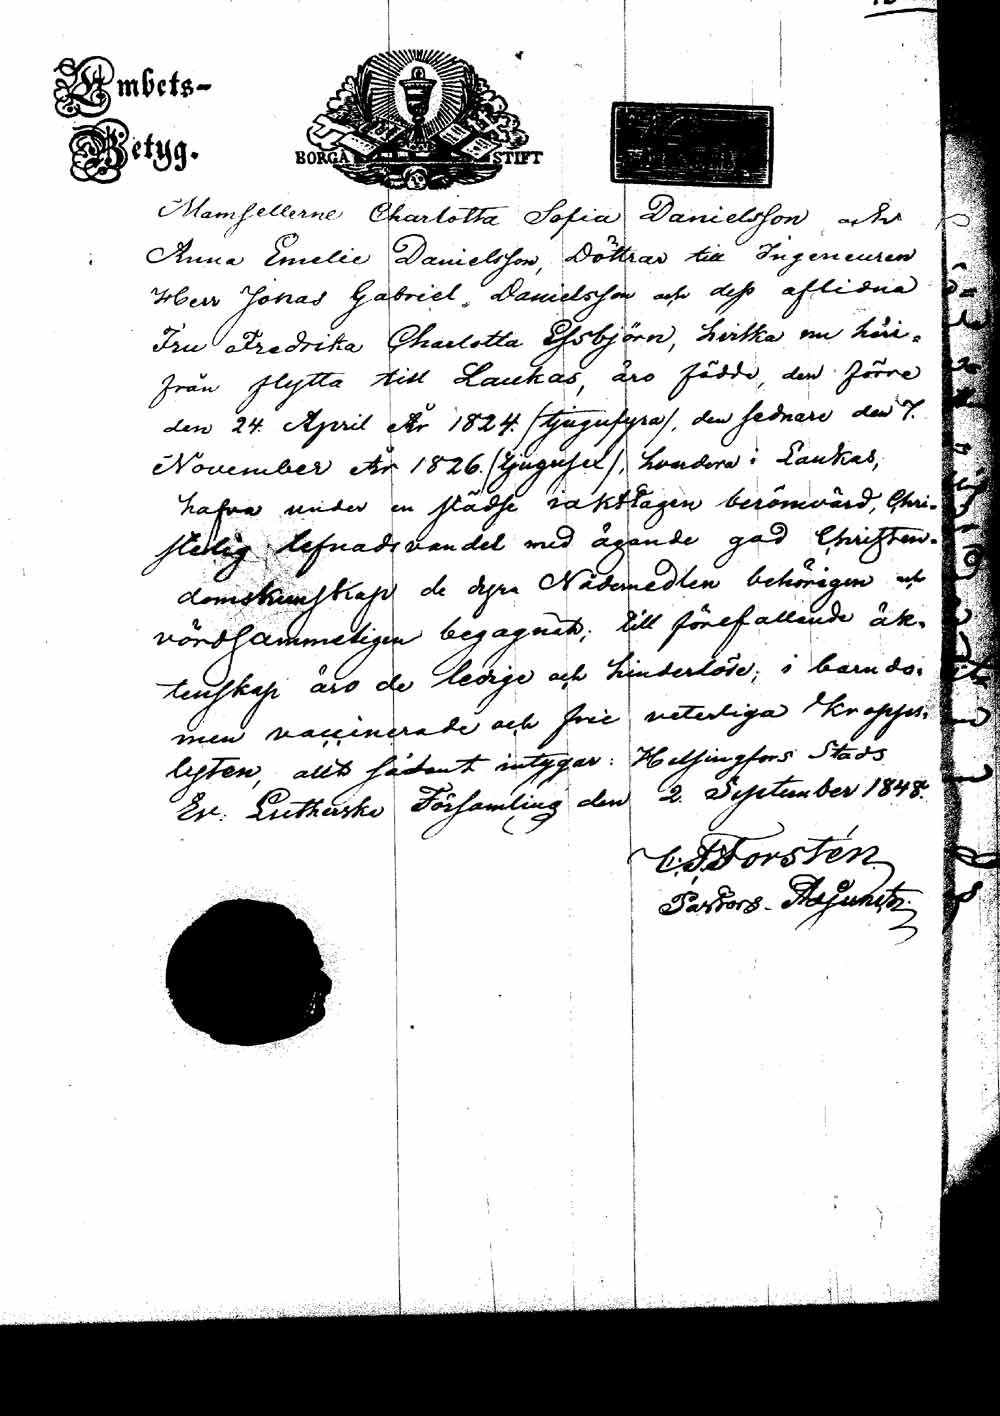 Embets-
Betyg.
BORGÅ STIFT
Mamsellerne Charlotta Sofia Danielsson och
Anna Emelie Danielsson, Döttrar till Ingeneuren
Herr Jonas Gabriel Danielsson och dess aflidna
Fru Fredrika Charlotta Essbjörn, hvilka nu häri-
från flytta till Laukas, äro födde, den förre
den 24 April År 1824. (tjugufyra), den sednare den 7.
November År 1826. (tjugusex), hvardera i Laukas,
hafva under en städse iakttagen berömvärd, Chri-
stelig lefnadsvandel med ägande god Christen-
domskunskap de dyra Nådemedlen behörigen och
vördsammeligen begagnat; till förefallande äk-
tenskap äro de ledige och hinderlöse; i barndo-
men vaccinerade och frie veterliga kropps-
lyten, allt sådant intygar: Helsingfors Stads
Ev. Lutherske Församling den 2 September 1848.
Forstén
Pastors-Adjunct.